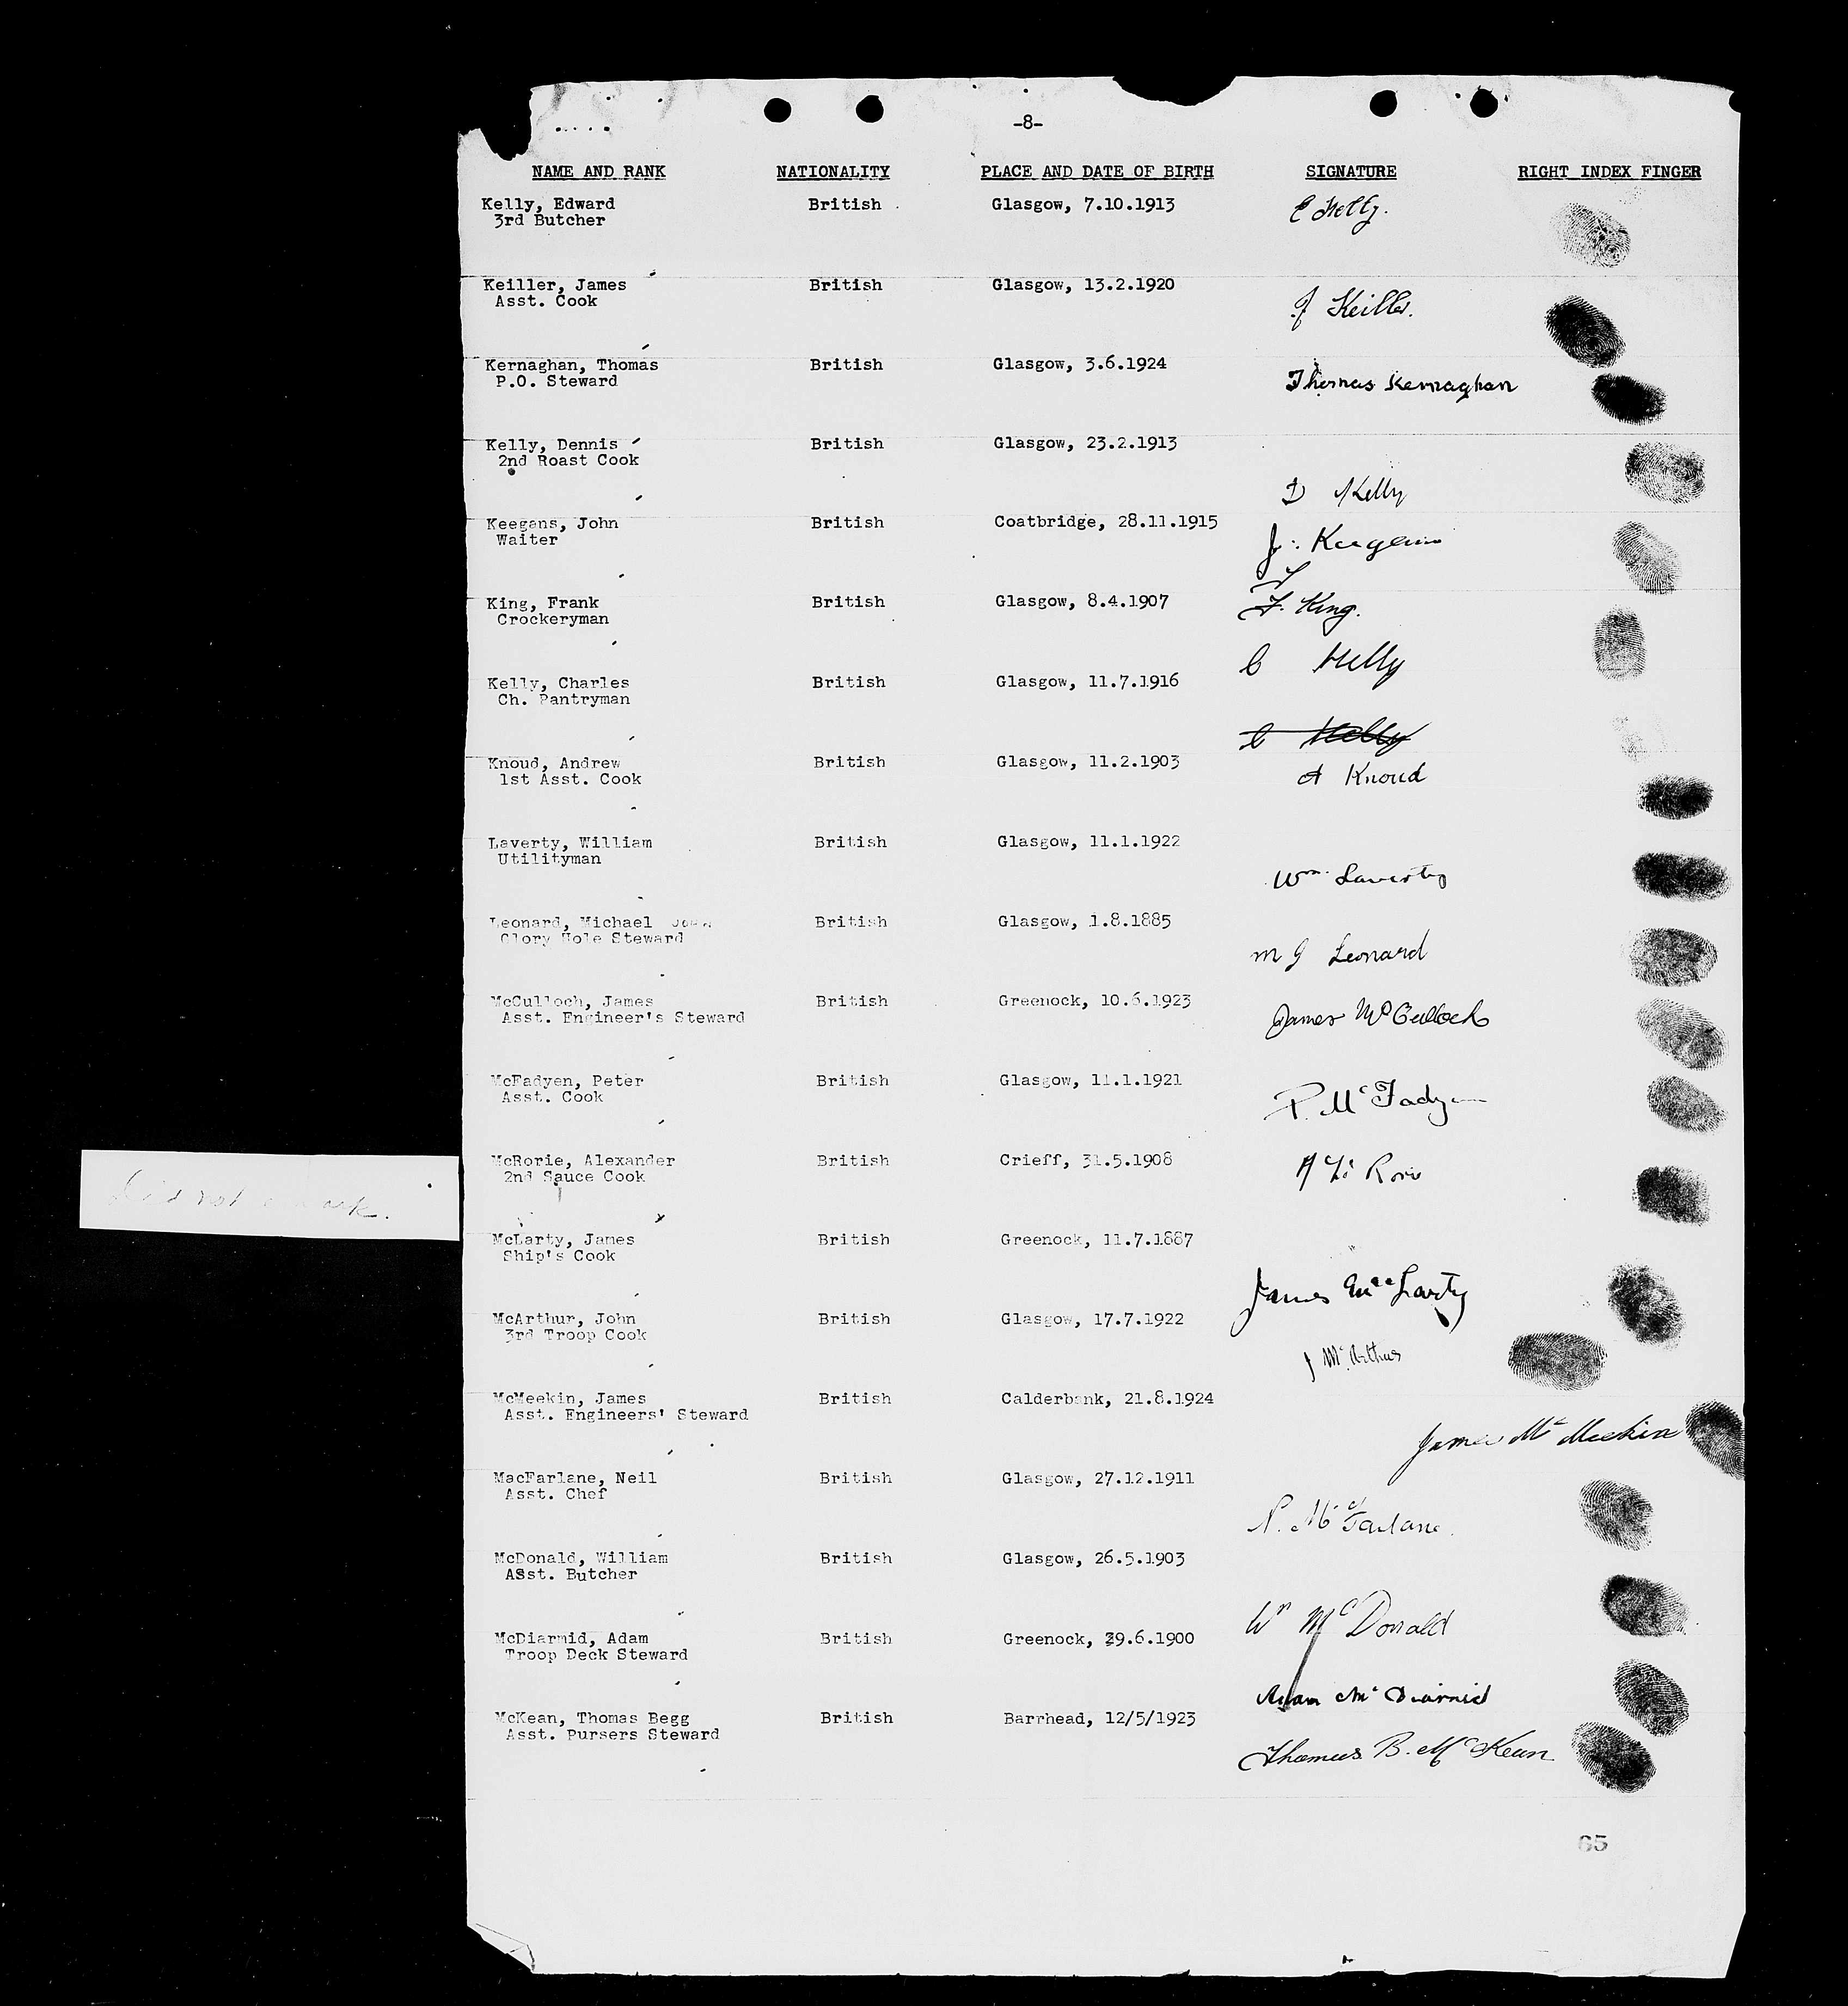 -8-
NAME AND RANK NATIONALITY PLACE AND DATE OF BIRTH SIGNATURE RIGHT INDEX FINGER
Kelly, Edward British Glasgow, 7.10.1913 E Kelly.
3rd Butcher
Keiller, James British Glasgow, 13.2.1920
Asst. Cook J Keiller.
Kernaghan, Thomas British Glasgow, 3.6.1924
P.O. Steward Thomas Kernaghan
Kelly, Dennis British Glasgow, 23.2.1913
2nd Roast Cook
D Kelly
Keegans, John British Coatbridge, 28.11.1915
Waiter J. Keegans
King, Frank British Glasgow, 8.4.1907 F. King.
Crockeryman
C Kelly
Kelly, Charles British Glasgow, 11.7.1916
Ch. Pantryman
C Kelly
Knoud, Andrew British Glasgow, 11.2.1903
1st Asst. Cook A Knoud
Laverty, William British Glasgow, 11.1.1922
Utilityman
Wm. Laverty
Leonard, Michael John British Glasgow, 1.8.1885
Glory Hole Steward
M J Leonard
McCulloch, James British Greenock, 10.6.1923
Asst. Engineer's Steward James McCulloch
McFadyen, Peter British Glasgow, 11.1.1921
Asst. Cook P. McFadyen
McRorie, Alexander British Crieff, 31.5.1908
2nd Sauce Cook A McRorie
McLarty, James British Greenock, 11.7.1887
Ship's Cook
James MacLarty
McArthur, John British Glasgow, 17.7.1922
3rd Troop Cook
J McArthur
McMeekin, James British Calderbank, 21.8.1924
Asst. Engineers' Steward
James McMeekin
MacFarlane, Neil British Glasgow, 27.12.1911
Asst. Chef
N. McFarlane.
McDonald, William British Glasgow, 26.5.1903
ASst. Butcher
Wm McDonald
McDiarmid, Adam British Greenock, 29.6.1900
Troop Deck Steward
Adam McDiarmid
McKean, Thomas Begg British Barrhead, 12/5/1923
Asst. Pursers Steward
Thomas B. McKean
65